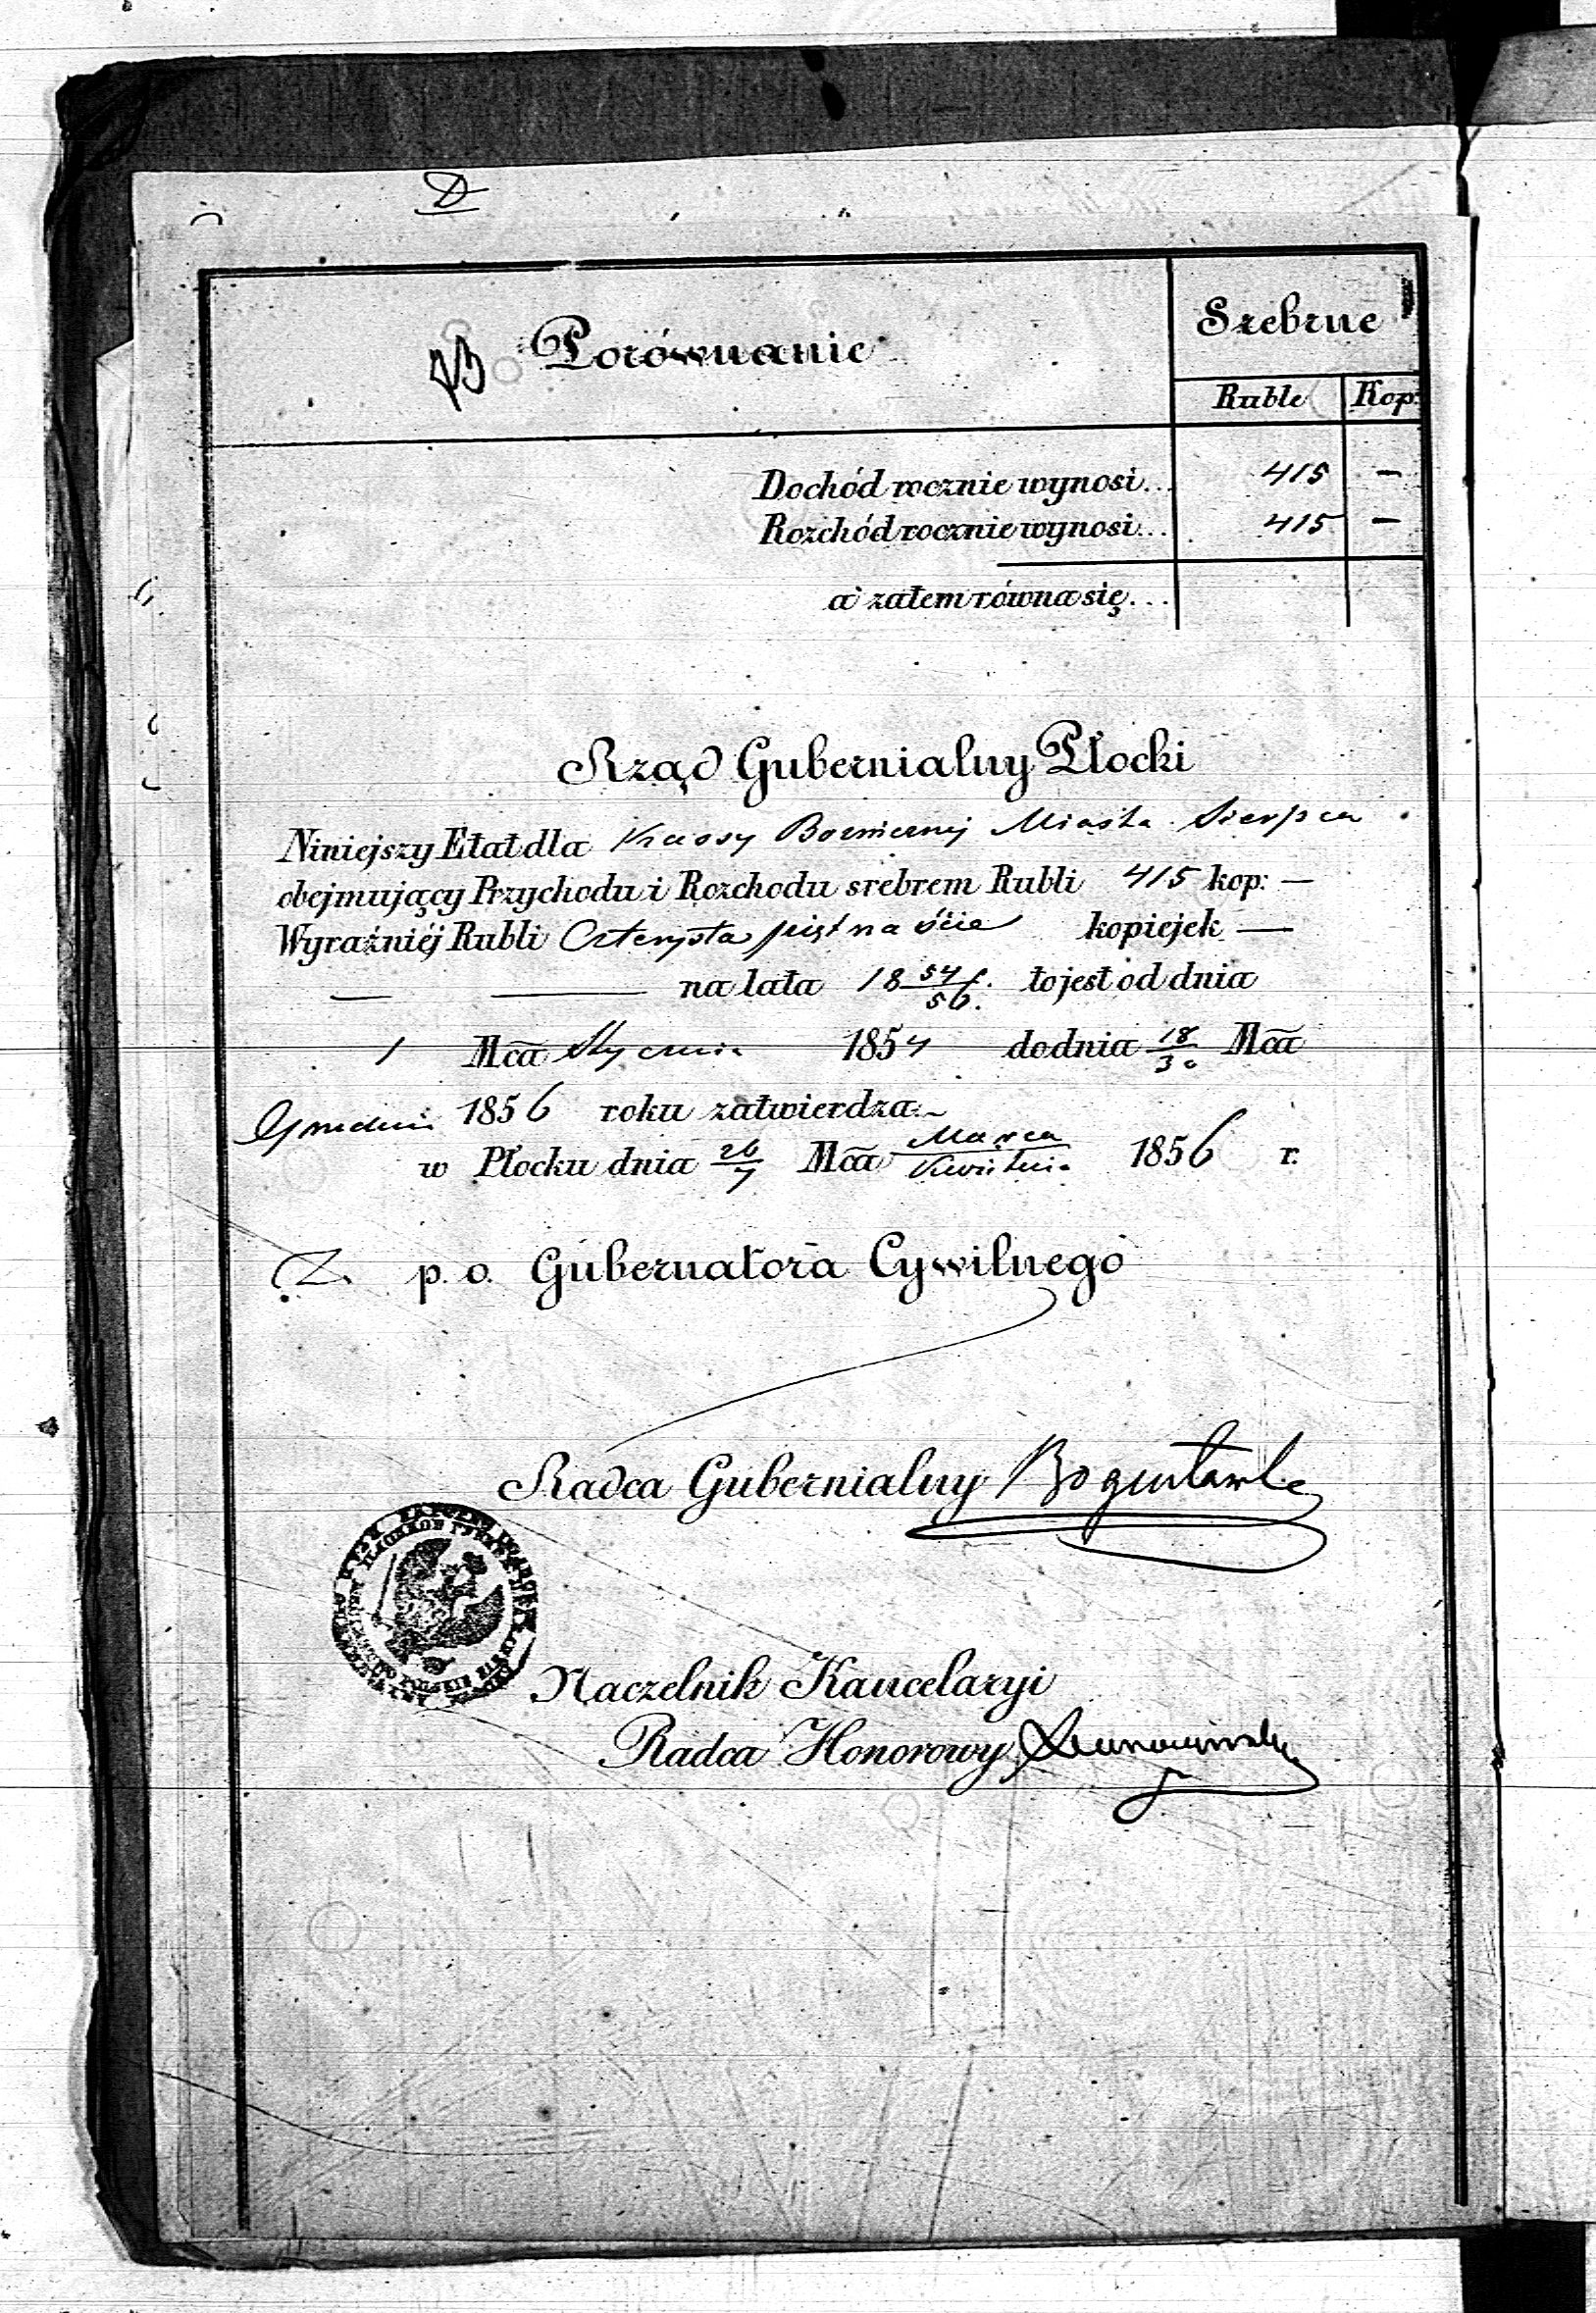 D
Porównanie
Srebrne
Ruble Kop:
Dochód rocznie wynosi... 415 —
Rozchód rocznie wynosi... 415 —
a zatem równa się...
Rząd Gubernialny Płocki
Niniejszy Etat dla Kassy Bożnicznej Miasta Sierpca
obejmujący Przychodu i Rozchodu srebrem Rubli 415 kop: —
Wyraźniéj Rubli Czterysta piętnaście kopiejek —
— — na lata 18 54/56. to jest od dnia
1 Mca Stycznia 1854 do dnia 18/30 Mca
Grudnia 1856 roku zatwierdza.
w Płocku dnia 26/7 Mca Marca/Kwietnia 1856 r.
p. o. Gubernatora Cywilnego
Radca Gubernialny Bogusławski
Naczelnik Kancelaryi
Radca Honorowy